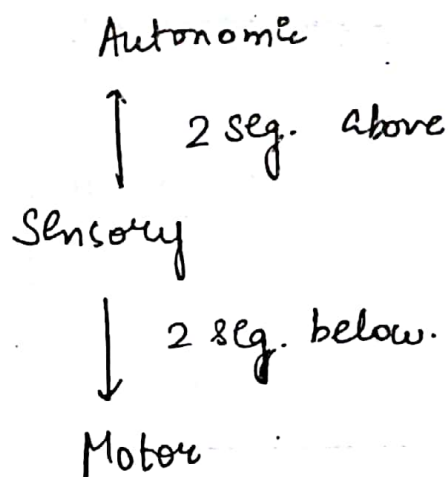 Autonomic
2 seg. above
Sensory
2 seg. below.
Motor